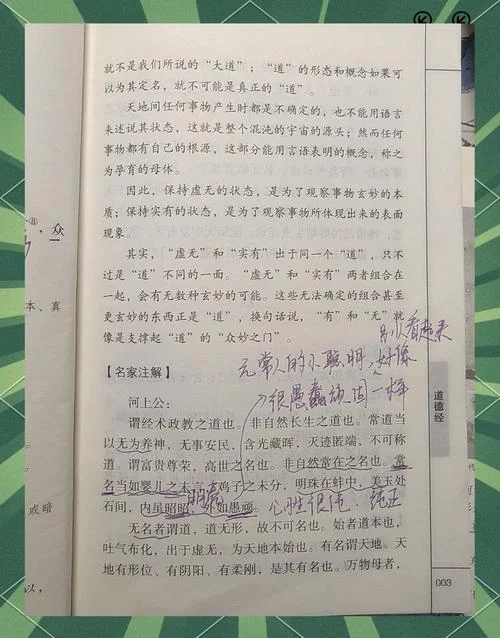 就不是我们所说的“大道”；“道”的形态和概念如果可
以为其定名，就不可能是真正的“道”。
天地间任何事物产生时都是不确定的，也不能用语言
来述说其状态，这就是整个混沌的宇宙的源头；然而任何
事物都有自己的根源，这部分能用言语表明的概念，称之
为孕育的母体。
因此，保持虚无的状态，是为了观察事物玄妙的本
质；保持实有的状态，是为了观察事物所体现出来的表面
现象。
其实，“虚无”和“实有”出于同一个“道”，只不
过是“道”不同的一面。“虚无”和“实有”两者组合在
一起，会有无数种玄妙的可能。这些无法确定的组合甚至
更玄妙的东西正是“道”，换句话说，“有”和“无”就
像是支撑起“道”的“众妙之门”。
别人看起来
无常人的小聪明，好像
很愚蠢顽固一样
【名家注解】
河上公：
谓经术政教之道也。非自然长生之道也。常道当
以无为养神，无事安民，含光藏晖，灭迹匿端，不可称
道。谓富贵尊荣，高世之名也。非自然常在之名也。常
名当如婴儿之未言，鸡子之未分，明珠在蚌中，美玉处
石间，内虽昭昭，外如愚顽。
明亮
心性很纯，纯正
无名者谓道，道无形，故不可名也。始者道本也，
吐气布化，出于虚无，为天地本始也。有名谓天地。天
地有形位、有阴阳、有柔刚，是其有名也。万物母者，
道德经
003
⑧
，众
本、真
或暗